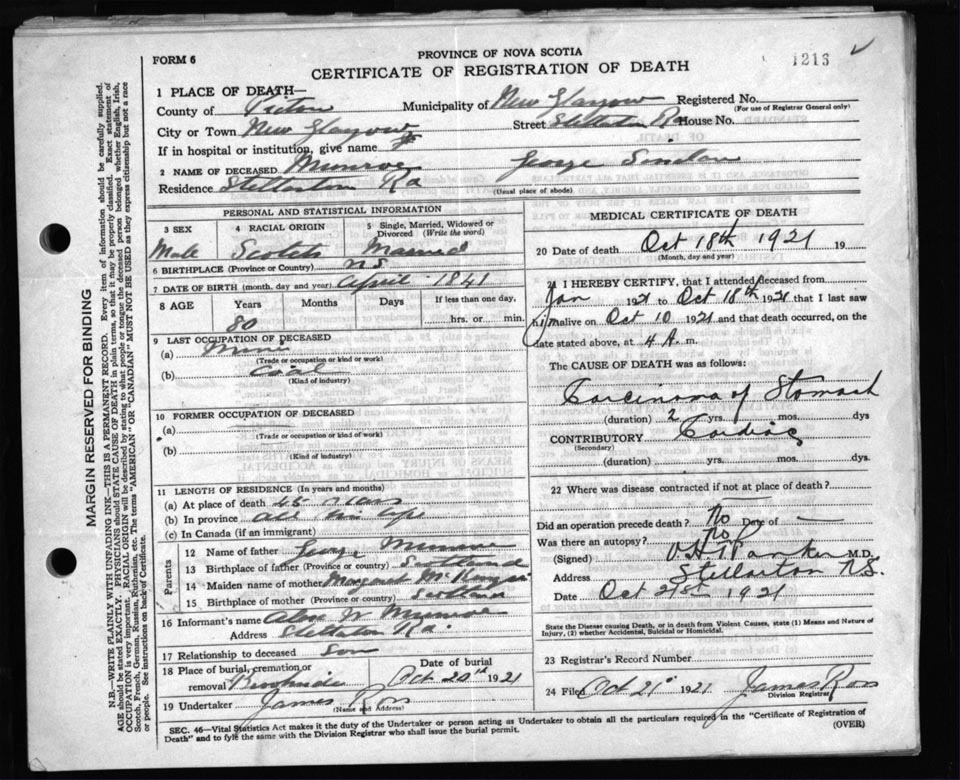 FORM 6
PROVINCE OF NOVA SCOTIA
1213
CERTIFICATE OF REGISTRATION OF DEATH
1 PLACE OF DEATH—
County of Pictou Municipality of New Glasgow Registered No.
(For use of Registrar General only)
City or Town New Glasgow Street Stellarton Rd House No.
If in hospital or institution, give name
2 NAME OF DECEASED Munroe George Sinclair
Residence Stellarton Rd
(Usual place of abode)
PERSONAL AND STATISTICAL INFORMATION
3 SEX 4 RACIAL ORIGIN 5 Single, Married, Widowed or Divorced (Write the word)
Male Scotch Married
6 BIRTHPLACE (Province or Country) N.S.
7 DATE OF BIRTH (month, day and year) April 1841
8 AGE Years Months Days If less than one day,
80 hrs. or min.
9 LAST OCCUPATION OF DECEASED
(a)
(Trade or occupation or kind or work)
(b) Coal
(Kind of industry)
10 FORMER OCCUPATION OF DECEASED
(a)
(Trade or occupation or kind or work)
(b)
(Kind of industry)
11 LENGTH OF RESIDENCE (In years and months)
(a) At place of death 45 years
(b) In province all his life
(c) In Canada (if an immigrant)
Parents
12 Name of father George Munroe
13 Birthplace of father (Province or country) Scotland
14 Maiden name of mother Margaret
15 Birthplace of mother (Province or country) Scotland
16 Informant's name W Munroe
Address Stellarton Rd.
17 Relationship to deceased Son
18 Place of burial, cremation or removal Brookside
Date of burial Oct 20th 1921
19 Undertaker James Ross
(Name and Address)
MEDICAL CERTIFICATE OF DEATH
20 Date of death Oct 18th 1921 19
(Month, day and year)
21 I HEREBY CERTIFY, that I attended deceased from
Jan 1921 to Oct 18th 1921 that I last saw
him alive on Oct 10 1921 and that death occurred, on the
date stated above, at 4 A. m.
The CAUSE OF DEATH was as follows:
Carcinoma of Stomach
(duration) 2 yrs. mos. dys
CONTRIBUTORY Cardiac
(Secondary)
(duration) yrs. mos. dys.
22 Where was disease contracted if not at place of death?
Did an operation precede death? No Date of —
Was there an autopsy? No
(Signed) Parker M.D.
Address Stellarton N.S.
Date Oct 21st 1921
State the Disease causing Death, or in death from Violent Causes, state (1) Means and Nature of
Injury, (2) whether Accidental, Suicidal or Homicidal.
23 Registrar's Record Number
24 Filed Oct 21st 1921 James Ross
Division Registrar
SEC. 46—Vital Statistics Act makes it the duty of the Undertaker or person acting as Undertaker to obtain all the particulars required in the "Certificate of Registration of
Death" and to fyle the same with the Division Registrar who shall issue the burial permit.
(OVER)
MARGIN RESERVED FOR BINDING
N.B.—WRITE PLAINLY WITH UNFADING INK—THIS IS A PERMANENT RECORD. Every item of information should be carefully supplied.
AGE should be stated EXACTLY. PHYSICIANS should STATE CAUSE OF DEATH in plain terms, so that it may be properly classified. Exact statement of
OCCUPATION is very important. RACIAL ORIGIN will be described by stating to what people or tongue the deceased person belonged whether English, Irish,
Scotch, French, German, Russian, Ruthenian, etc. The terms "AMERICAN" OR "CANADIAN" MUST NOT BE USED as they express citizenship but not a race
or people. See instructions on back of Certificate.